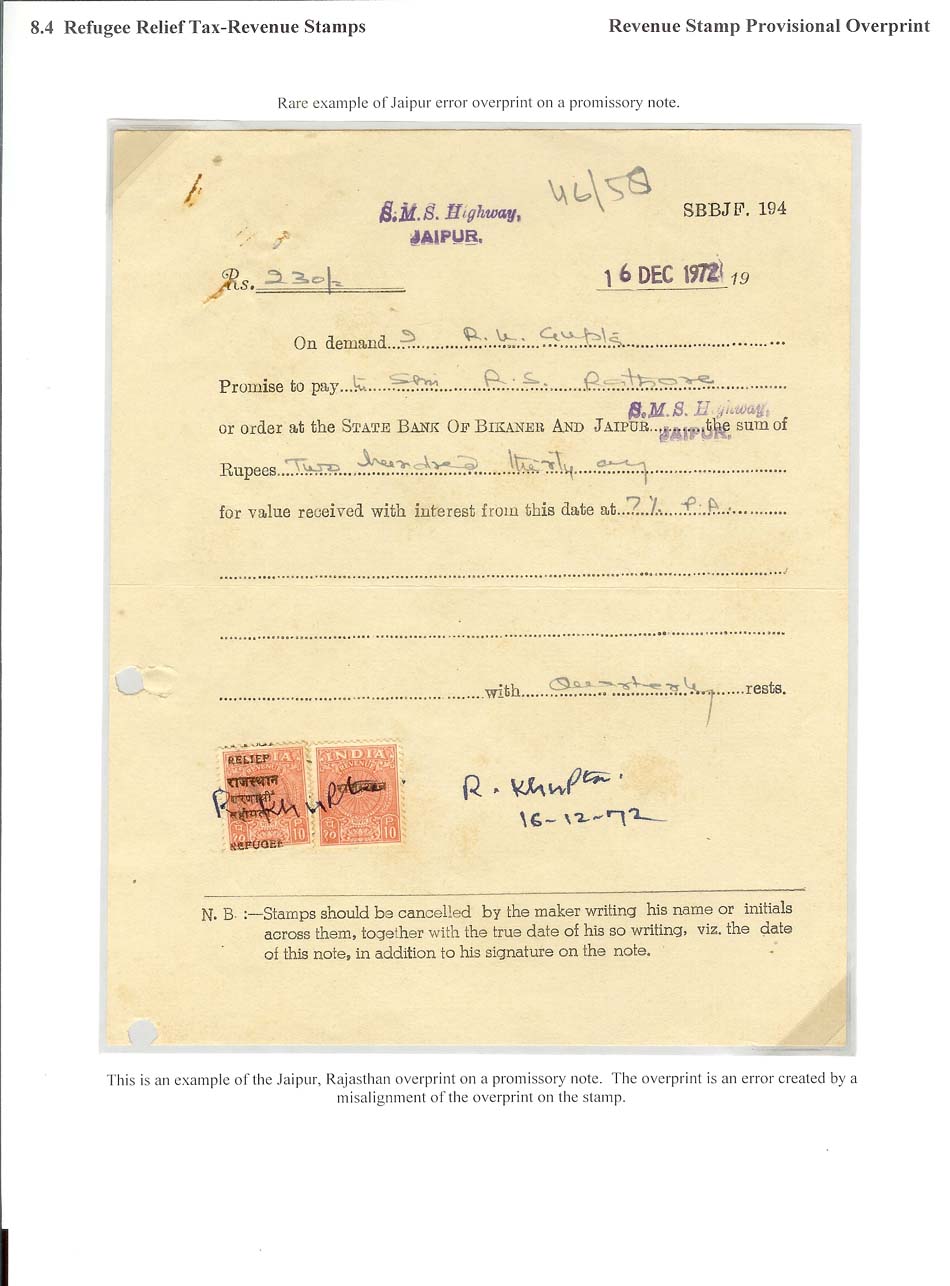 8.4 Refugee Relief Tax-Revenue Stamps Revenue Stamp Provisional Overprint
Rare example of Jaipur error overprint on a promissory note.
46/58
S.M.S. Highway,
JAIPUR.
SBBJF. 194
Rs. 230/-
16 DEC 1972 19
On demand I R. K. Gupta
Promise to pay to Shri R. S. Rathore
S.M.S. Highway,
JAIPUR.
or order at the STATE BANK OF BIKANER AND JAIPUR the sum of
Rupees Two hundred thirty only
for value received with interest from this date at 7% P.A.
with Quarterly rests.
RELIEF
राजस्थान
REFUGEE
INDIA
REVENUE
10
10
16-12-72
N. B. :—Stamps should be cancelled by the maker writing his name or initials
across them, together with the true date of his so writing, viz. the date
of this note, in addition to his signature on the note.
This is an example of the Jaipur, Rajasthan overprint on a promissory note. The overprint is an error created by a
misalignment of the overprint on the stamp.